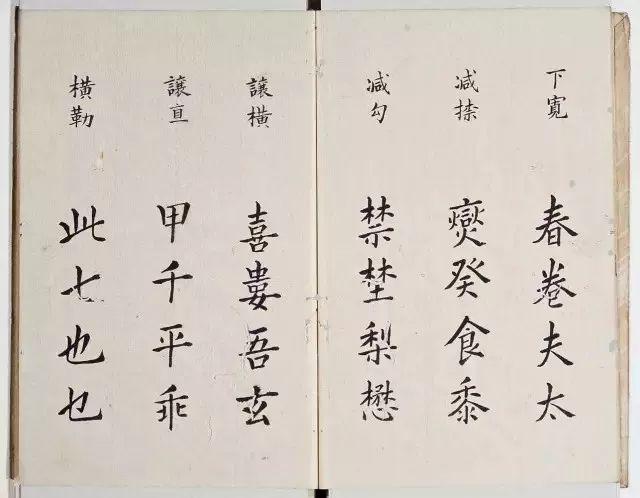 下寬 春卷夫太
减捺 爕癸食黍
减勾 禁埜梨懋
讓橫 喜婁吾玄
讓直 甲千平乖
橫勒 此七也乜